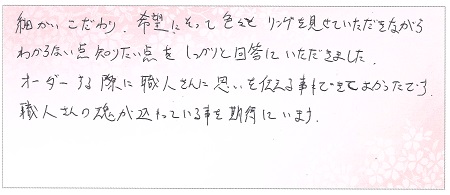 細かいこだわり、希望にそって色々と リングを見せていただきながら
わからない点 知りたい点を しっかりと回答していただきました。
オーダーする際に職人さんに思いを伝える事ができてよかったです。
職人さんの魂が込もっている事を期待しています。